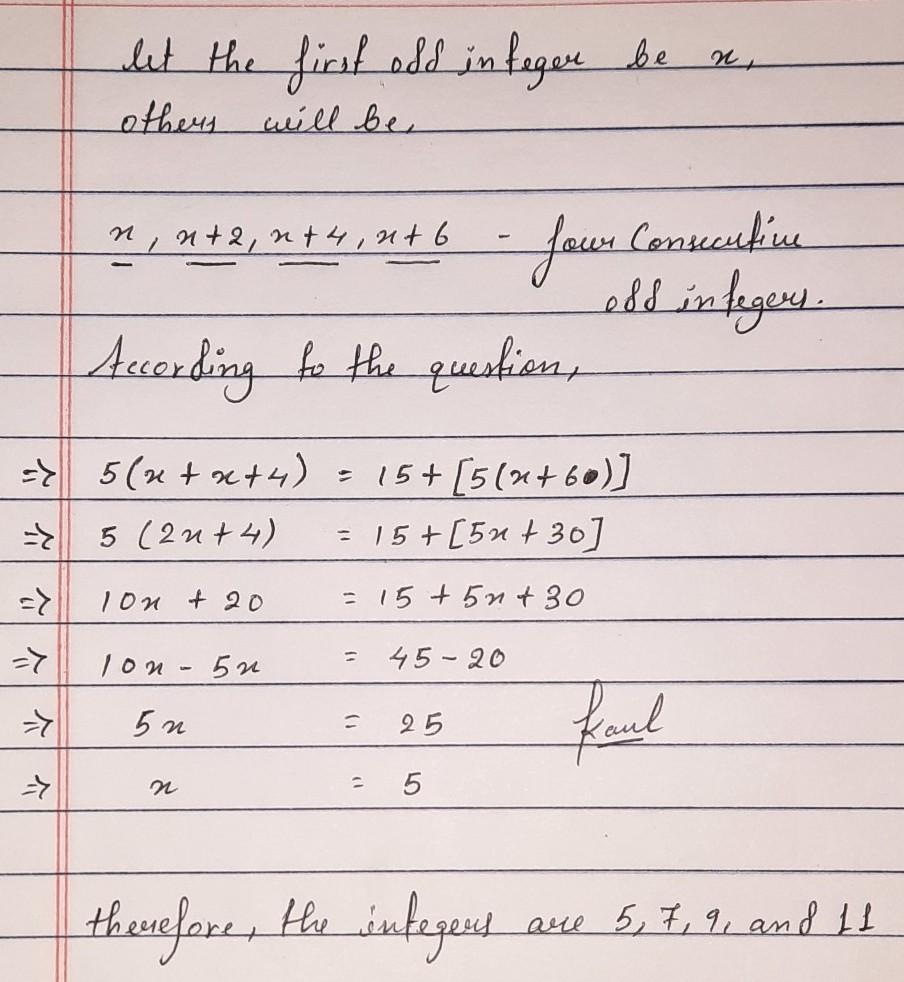 let the first odd integer be x,
others will be,
x, x+2, x+4, x+6 - four Consecutive
odd integers.
According to the question,
=> 5(x + x+4) = 15 + [5(x+6)]
=> 5 (2x+4) = 15 + [5x + 30]
=> 10x + 20 = 15 + 5x + 30
=> 10x - 5x = 45 - 20
=> 5x = 25
=> x = 5
therefore, the integers are 5, 7, 9, and 11